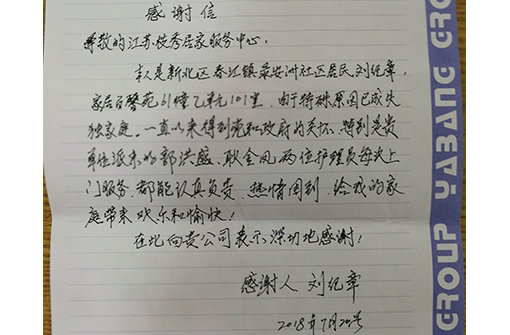 感谢信
尊敬的江苏俊秀居家服务中心.
本人是新北区春江镇录安洲社区居民刘纪章.
家居百馨苑61幢乙单元101室,由于特殊原因已成失
独家庭.一直以来得到党和政府的关怀.特别是贵
单位派来的郭洪盛.耿金凤两位护理员每次上
门服务.都能认真负责.热情周到.给我的家
庭带来欢乐和愉快!
在此向贵公司表示深切地感谢!
感谢人 刘纪章
2018年7月20号
YABANG GROUP